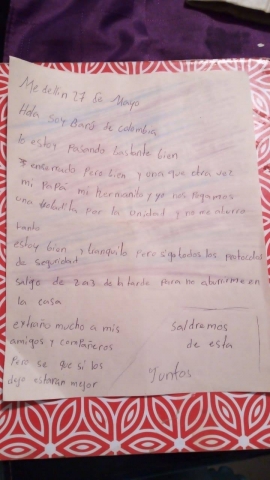 Medellin 27 De Mayo
Hola soy Barú de colombia
lo estoy pasando bastante bien
ensarrado Pero bien y una que otra vez
mi PaPá mi Hermanito y yo nos Pegamos
una por la unidad y no me aburro
tanto
estoy bien y tranquilo Pero sigo todos los protocolos
de seguridad
salgo de 2 a 3 de la tarde para no aburirme en
la casa
extraño mucho a mis
amigos y compañeros
Pero se que si los
dejo estaran mejor
Saldremos
de esta
Juntos